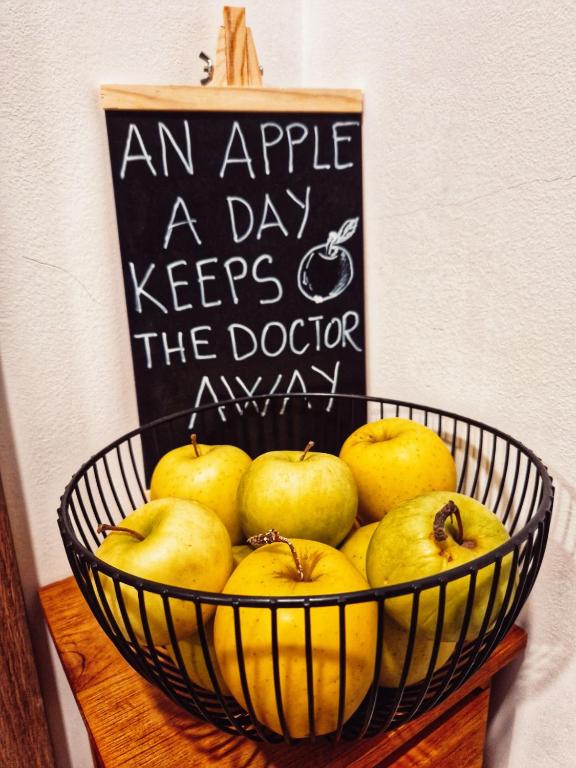 AN APPLE
A DAY
KEEPS
THE DOCTOR
AWAY